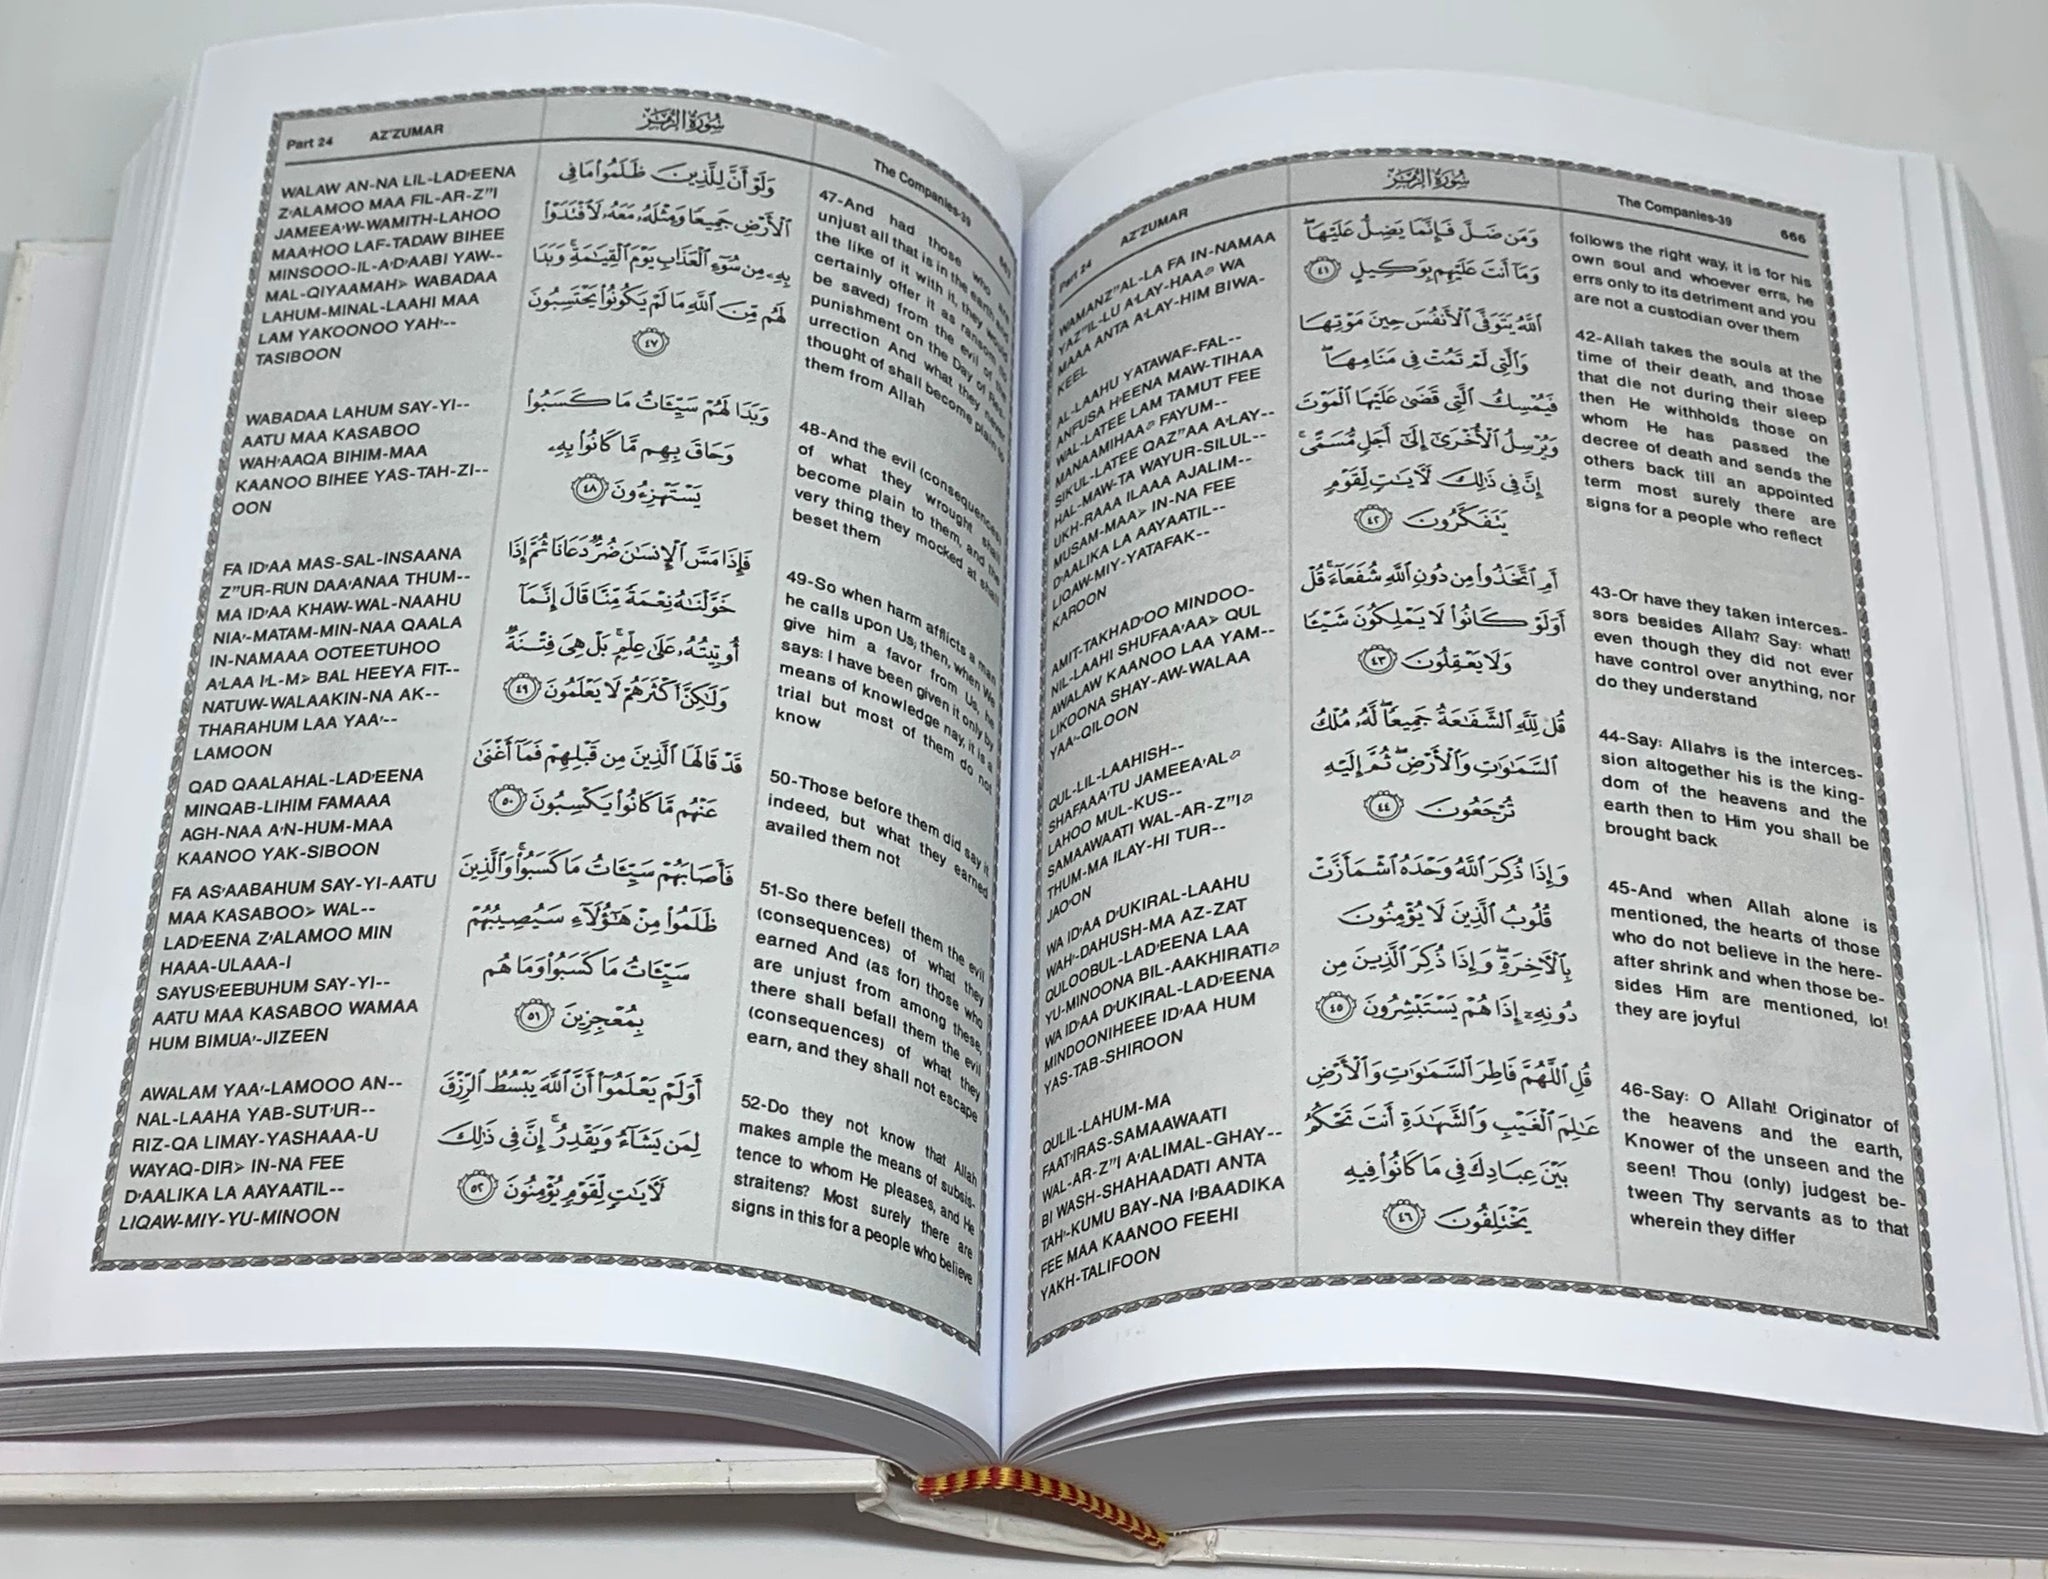 Part 24 AZ'ZUMAR
سُورَةُ الزُّمَرِ
The Companies-39 666
WAMANZ"AL-LA FA IN-NAMAA
YAZ"IL-LU A'LAY-HAA WA
MAAA ANTA A'LAY-HIM BIWA-
KEEL
AL-LAAHU YATAWAF-FAL--
ANFUSA H'EENA MAW-TIHAA
WAL-LATEE LAM TAMUT FEE
MANAAMIHAA FAYUM--
SIKUL-LATEE QAZ"AA A'LAY--
HAL-MAW-TA WAYUR-SILUL--
UKH-RAAA ILAAA AJALIM--
MUSAM-MAA> IN-NA FEE
D'AALIKA LA AAYAATIL--
LIQAW-MIY-YATAFAK--
KAROON
AMIT-TAKHAD'OO MINDOO-
NIL-LAAHI SHUFAA'AA> QUL
AWALAW KAANOO LAA YAM--
LIKOONA SHAY-AW-WALAA
YAA'-QILOON
QUL-LIL-LAAHISH--
SHAFAAA'TU JAMEEA'AL
LAHOO MUL-KUS--
SAMAAWAATI WAL-AR-Z"I
THUM-MA ILAY-HI TUR--
JAO'ON
WA ID'AA D'UKIRAL-LAAHU
WAH'-DAHUSH-MA AZ-ZAT
QULOOBUL-LAD'EENA LAA
YU-MINOONA BIL-AAKHIRATI
WA ID'AA D'UKIRAL-LAD'EENA
MINDOONIHEEE ID'AA HUM
YAS-TAB-SHIROON
QULIL-LAHUM-MA
FAAT'IRAS-SAMAAWAATI
WAL-AR-Z"I A'ALIMAL-GHAY--
BI WASH-SHAHAADATI ANTA
TAH'-KUMU BAY-NA I'BAADIKA
FEE MAA KAANOO FEEHI
YAKH-TALIFOON
وَمَن ضَلَّ فَإِنَّمَا يَضِلُّ عَلَيْهَا ۖ
وَمَا أَنتَ عَلَيْهِم بِوَكِيلٍ ٤١
اللَّهُ يَتَوَفَّى الْأَنفُسَ حِينَ مَوْتِهَا
وَالَّتِي لَمْ تَمُتْ فِي مَنَامِهَا ۖ
فَيُمْسِكُ الَّتِي قَضَىٰ عَلَيْهَا الْمَوْتَ
وَيُرْسِلُ الْأُخْرَىٰ إِلَىٰ أَجَلٍ مُّسَمًّى ۚ
إِنَّ فِي ذَٰلِكَ لَآيَاتٍ لِّقَوْمٍ
يَتَفَكَّرُونَ ٤٢
أَمِ اتَّخَذُوا مِن دُونِ اللَّهِ شُفَعَاءَ ۚ قُلْ
أَوَلَوْ كَانُوا لَا يَمْلِكُونَ شَيْئًا
وَلَا يَعْقِلُونَ ٤٣
قُل لِّلَّهِ الشَّفَاعَةُ جَمِيعًا ۖ لَّهُ مُلْكُ
السَّمَاوَاتِ وَالْأَرْضِ ۖ ثُمَّ إِلَيْهِ
تُرْجَعُونَ ٤٤
وَإِذَا ذُكِرَ اللَّهُ وَحْدَهُ اشْمَأَزَّتْ
قُلُوبُ الَّذِينَ لَا يُؤْمِنُونَ
بِالْآخِرَةِ ۖ وَإِذَا ذُكِرَ الَّذِينَ مِن
دُونِهِ إِذَا هُمْ يَسْتَبْشِرُونَ ٤٥
قُلِ اللَّهُمَّ فَاطِرَ السَّمَاوَاتِ وَالْأَرْضِ
عَالِمَ الْغَيْبِ وَالشَّهَادَةِ أَنتَ تَحْكُمُ
بَيْنَ عِبَادِكَ فِي مَا كَانُوا فِيهِ
يَخْتَلِفُونَ ٤٦
follows the right way, it is for his
own soul and whoever errs, he
errs only to its detriment and you
are not a custodian over them
42-Allah takes the souls at the
time of their death, and those
that die not during their sleep
then He withholds those on
whom He has passed the
decree of death and sends the
others back till an appointed
term most surely there are
signs for a people who reflect
43-Or have they taken interces-
sors besides Allah? Say: what!
even though they did not ever
have control over anything, nor
do they understand
44-Say: Allah's is the interces-
sion altogether his is the king-
dom of the heavens and the
earth then to Him you shall be
brought back
45-And when Allah alone is
mentioned, the hearts of those
who do not believe in the here-
after shrink and when those be-
sides Him are mentioned, lo!
they are joyful
46-Say: O Allah! Originator of
the heavens and the earth,
Knower of the unseen and the
seen! Thou (only) judgest be-
tween Thy servants as to that
wherein they differ
Part 24 AZ'ZUMAR
سُورَةُ الزُّمَرِ
The Companies-39
WALAW AN-NA LIL-LAD'EENA
Z'ALAMOO MAA FIL-AR-Z"I
JAMEEA'W-WAMITH-LAHOO
MAA'HOO LAF-TADAW BIHEE
MINSOOO-IL-A'D'AABI YAW--
MAL-QIYAAMAH> WABADAA
LAHUM-MINAL-LAAHI MAA
LAM YAKOONOO YAH'--
TASIBOON
WABADAA LAHUM SAY-YI--
AATU MAA KASABOO
WAH'AAQA BIHIM-MAA
KAANOO BIHEE YAS-TAH-ZI--
OON
FA ID'AA MAS-SAL-INSAANA
Z"UR-RUN DAA'ANAA THUM--
MA ID'AA KHAW-WAL-NAAHU
NIA'-MATAM-MIN-NAA QAALA
IN-NAMAAA OOTEETUHOO
A'LAA I'L-M> BAL HEEYA FIT--
NATUW-WALAAKIN-NA AK--
THARAHUM LAA YAA'--
LAMOON
QAD QAALAHAL-LAD'EENA
MINQAB-LIHIM FAMAAA
AGH-NAA A'N-HUM-MAA
KAANOO YAK-SIBOON
FA AS'AABAHUM SAY-YI-AATU
MAA KASABOO> WAL--
LAD'EENA Z'ALAMOO MIN
HAAA-ULAAA-I
SAYUS'EEBUHUM SAY-YI--
AATU MAA KASABOO WAMAA
HUM BIMUA'-JIZEEN
AWALAM YAA'-LAMOOO AN--
NAL-LAAHA YAB-SUT'UR--
RIZ-QA LIMAY-YASHAAA-U
WAYAQ-DIR> IN-NA FEE
D'AALIKA LA AAYAATIL--
LIQAW-MIY-YU-MINOON
وَلَوْ أَنَّ لِلَّذِينَ ظَلَمُوا مَا فِي
الْأَرْضِ جَمِيعًا وَمِثْلَهُ مَعَهُ لَافْتَدَوْا
بِهِ مِن سُوءِ الْعَذَابِ يَوْمَ الْقِيَامَةِ ۚ وَبَدَا
لَهُم مِّنَ اللَّهِ مَا لَمْ يَكُونُوا يَحْتَسِبُونَ
٤٧
وَبَدَا لَهُمْ سَيِّئَاتُ مَا كَسَبُوا
وَحَاقَ بِهِم مَّا كَانُوا بِهِ
يَسْتَهْزِءُونَ ٤٨
فَإِذَا مَسَّ الْإِنسَانَ ضُرٌّ دَعَانَا ثُمَّ إِذَا
خَوَّلْنَاهُ نِعْمَةً مِّنَّا قَالَ إِنَّمَا
أُوتِيتُهُ عَلَىٰ عِلْمٍ ۚ بَلْ هِيَ فِتْنَةٌ
وَلَٰكِنَّ أَكْثَرَهُمْ لَا يَعْلَمُونَ ٤٩
قَدْ قَالَهَا الَّذِينَ مِن قَبْلِهِمْ فَمَا أَغْنَىٰ
عَنْهُم مَّا كَانُوا يَكْسِبُونَ ٥٠
فَأَصَابَهُمْ سَيِّئَاتُ مَا كَسَبُوا ۚ وَالَّذِينَ
ظَلَمُوا مِنْ هَٰؤُلَاءِ سَيُصِيبُهُمْ
سَيِّئَاتُ مَا كَسَبُوا وَمَا هُم
بِمُعْجِزِينَ ٥١
أَوَلَمْ يَعْلَمُوا أَنَّ اللَّهَ يَبْسُطُ الرِّزْقَ
لِمَن يَشَاءُ وَيَقْدِرُ ۚ إِنَّ فِي ذَٰلِكَ
لَآيَاتٍ لِّقَوْمٍ يُؤْمِنُونَ ٥٢
47-And had those who are
unjust all that is in the earth and
the like of it with it, they would
certainly offer it as ransom (to
be saved) from the evil of the
punishment on the Day of Res-
urrection And what they never
thought of shall become plain to
them from Allah
48-And the evil (consequences)
of what they wrought shall
become plain to them, and the
very thing they mocked at shall
beset them
49-So when harm afflicts a man
he calls upon Us; then, when We
give him a favor from Us, he
says: I have been given it only by
means of knowledge nay, it is a
trial but most of them do not
know
50-Those before them did say it
indeed, but what they earned
availed them not
51-So there befell them the evil
(consequences) of what they
earned And (as for) those who
are unjust from among these,
there shall befall them the evil
(consequences) of what they
earn, and they shall not escape
52-Do they not know that Allah
makes ample the means of subsis-
tence to whom He pleases, and He
straitens? Most surely there are
signs in this for a people who believe